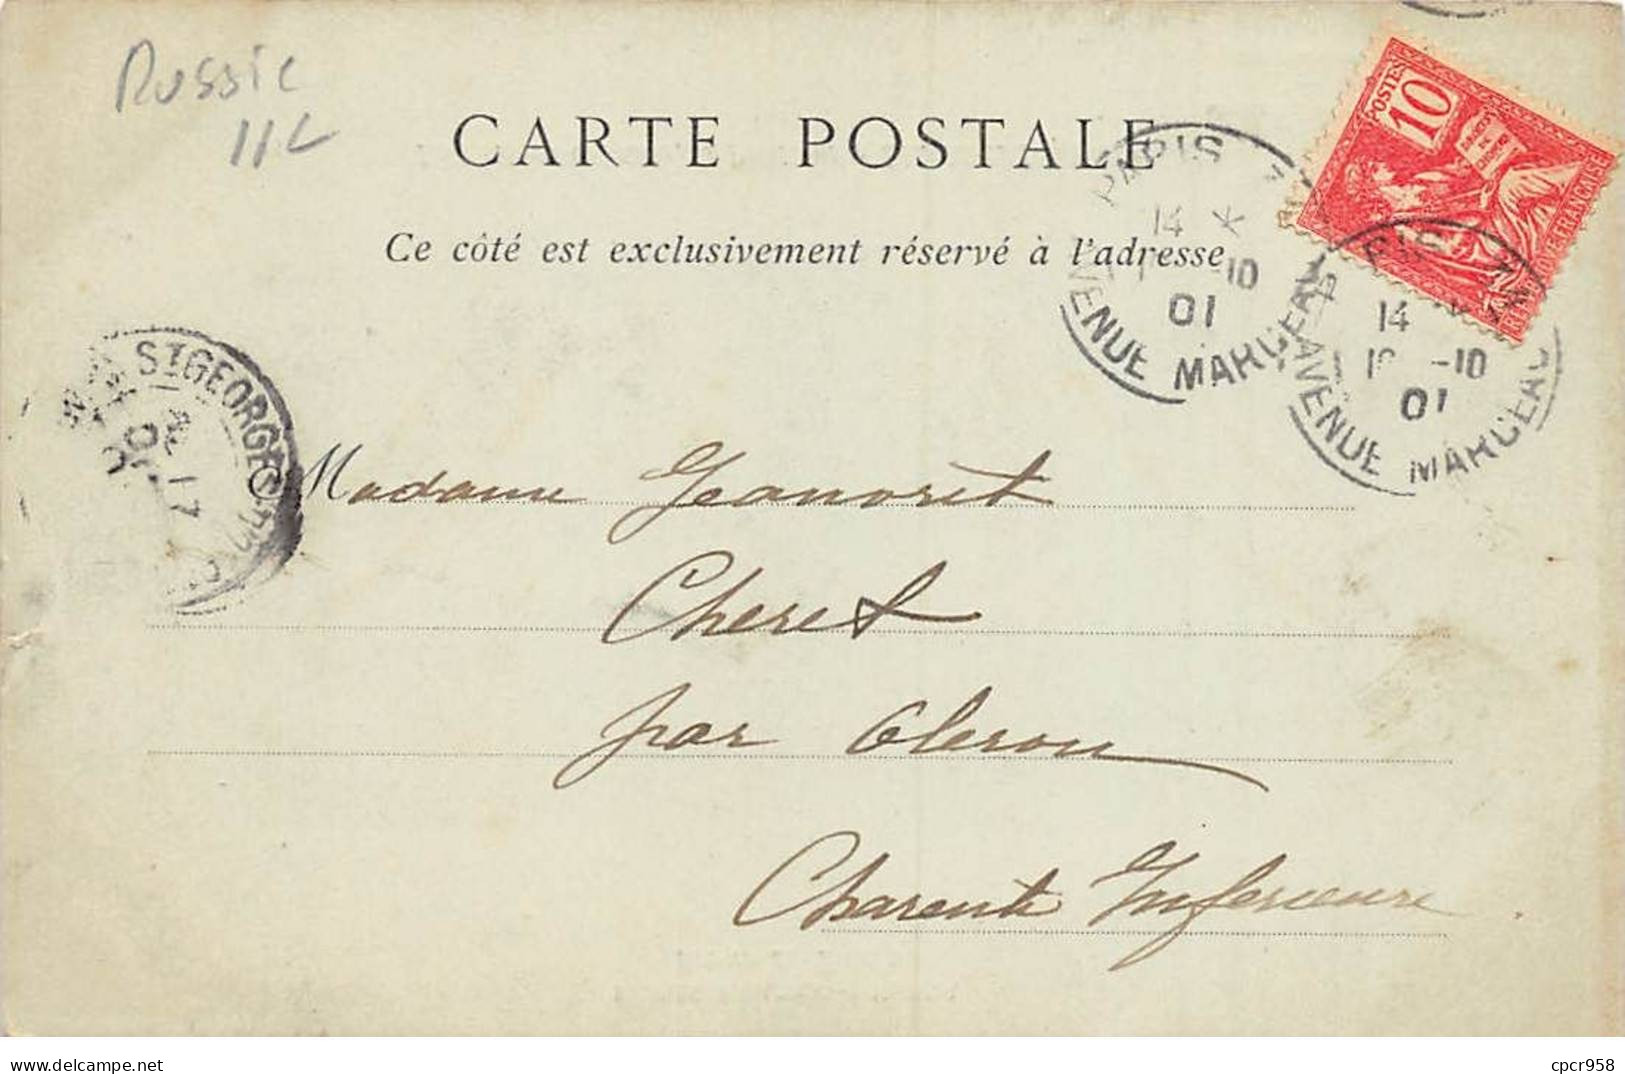 Russie
112
CARTE POSTALE
Ce côté est exclusivement réservé à l'adresse
POSTES
10
PARIS
14 *
-10
01
AVENUE MARCEAU
14
-10
01
AVENUE MARCEAU
ST GEORGES
17
Madame Jeanoret
Cheret
par Oleron
Charente Inferieure
delcampe.net
cpcr958